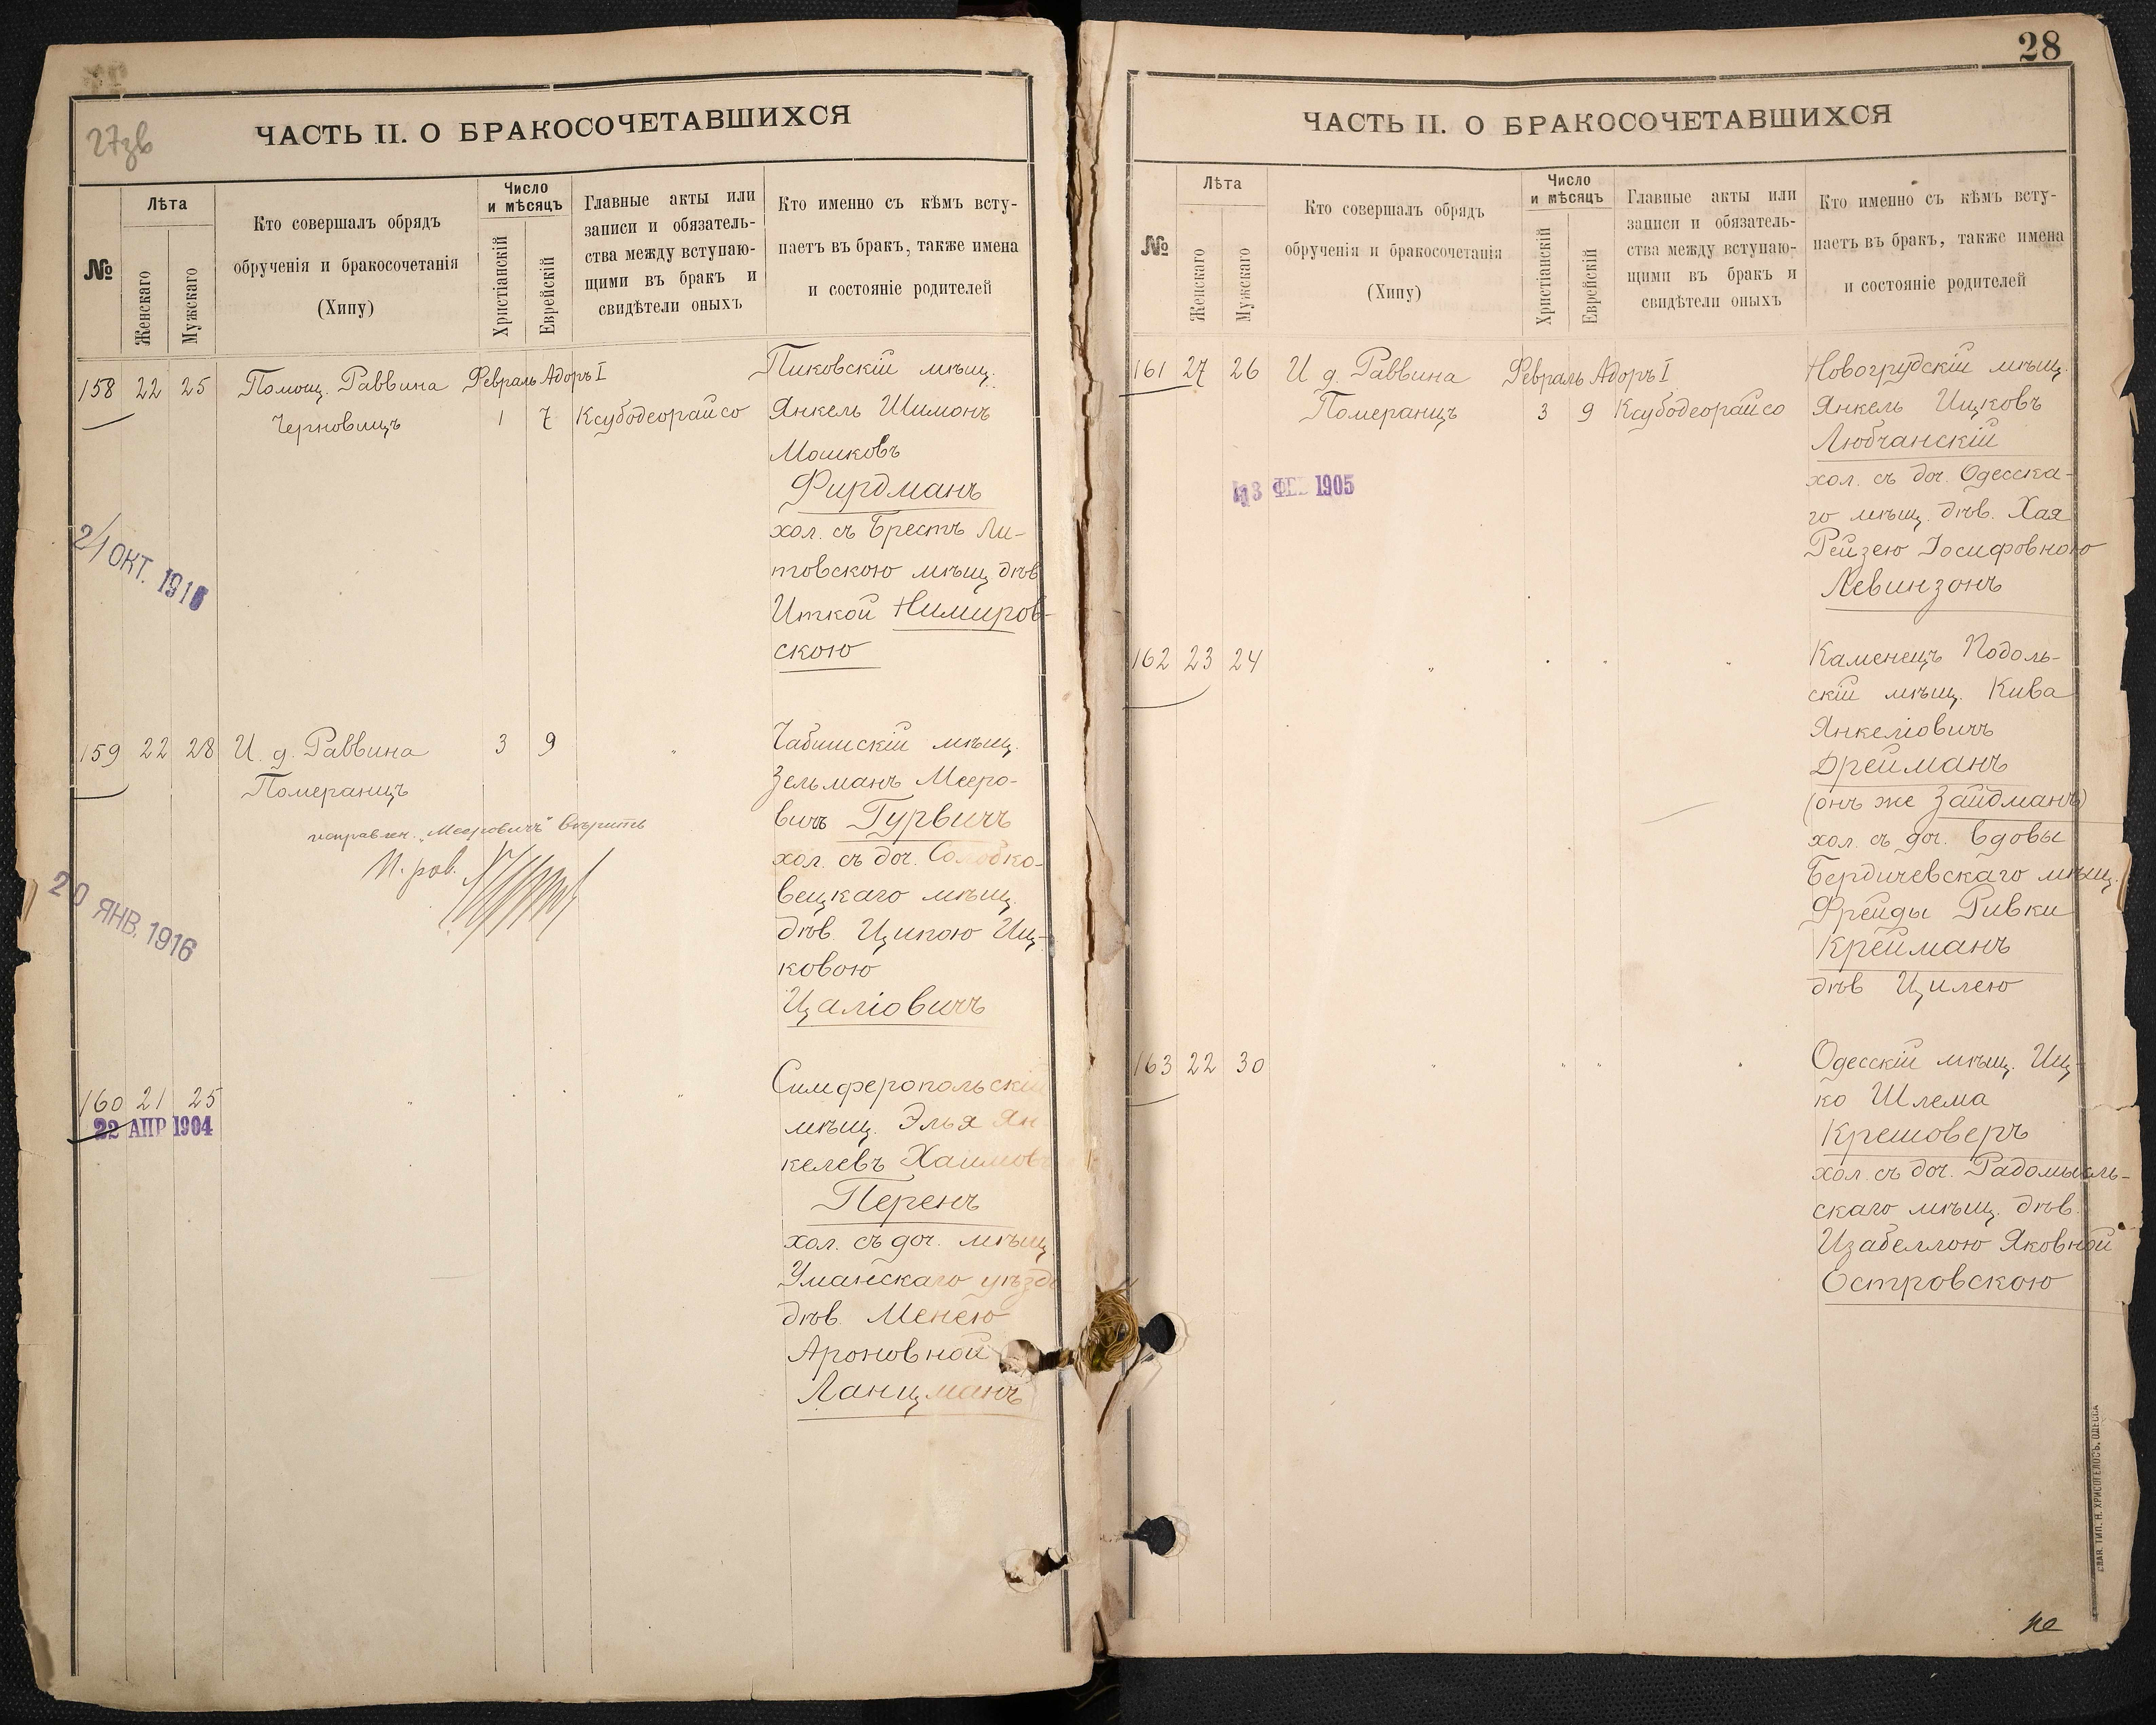 27зв
ЧАСТЬ II. О БРАКОСОЧЕТАВШИХСЯ
№
Лѣта
Женскаго
Мужскаго
Кто совершалъ обрядъ
обрученія и бракосочетанія
(Хипу)
Число
и мѣсяцъ
Христіанскій
Еврейскій
Главные акты или
записи и обязатель-
ства между вступаю-
щими въ бракъ и
свидѣтели оныхъ
Кто именно съ кѣмъ всту-
паетъ въ бракъ, также имена
и состояніе родителей
158 22 25 Помощ. Раввина Февраль Адоръ I Пиковскій мѣщ.
Черновицъ 1 7 Ксубодеорайсо Янкель Шимонъ
Мошковъ
Фирдманъ
хол. съ Брестъ Ли-
товскою мѣщ. дѣв.
Иткой Нимиров-
скою
21 ОКТ. 1915
159 22 28 И. д. Раввина 3 9 " Чабишскій мѣщ.
Померанцъ Зельманъ Мееро-
вичъ Гурвичъ
исправлен. "Мееровичъ" вѣрить
И. рав.
хол. съ доч. Солобко-
вецкаго мѣщ.
дѣв. Ципою Иц-
ковою
Цаліовичъ
20 ЯНВ. 1916
160 21 25 " " " " Симферопольскій
22 АПР 1904
мѣщ. Элья Ян
келевъ Хаимовъ
Перенъ
хол. съ доч. мѣщ.
Уманскаго уѣзда
дѣв. Менею
Ароновной
Ланцманъ
28
ЧАСТЬ II. О БРАКОСОЧЕТАВШИХСЯ
№
Лѣта
Женскаго
Мужскаго
Кто совершалъ обрядъ
обрученія и бракосочетанія
(Хипу)
Число
и мѣсяцъ
Христіанскій
Еврейскій
Главные акты или
записи и обязатель-
ства между вступаю-
щими въ бракъ и
свидѣтели оныхъ
Кто именно съ кѣмъ всту-
паетъ въ бракъ, также имена
и состояніе родителей
161 27 26 И д. Раввина Февраль Адоръ I Новогрудскій мѣщ.
Померанцъ 3 9 Ксубодеорайсо Янкель Ицковъ
Любчанскій
ФЕВ 1905
хол. съ доч. Одесска-
го мѣщ. дѣв. Хая
Рейзею Іосифовною
Левинзонъ
162 23 24 " " " " Каменецъ Подоль-
скій мѣщ. Кива
Янкеліовичъ
Дрейманъ
(онъ же Зайдманъ)
хол. съ доч. вдовы
Бердичевскаго мѣщ.
Фрейды Ривки
Крейманъ
дѣв Цилею
163 22 30 " " " " Одесскій мѣщ. Иц-
ко Шлема
Крешоверъ
хол. съ доч. Радомысль-
скаго мѣщ. дѣв.
Изабеллою Яковной
Островскою
СЛАВ. ТИП. Н. ХРИСОГЕЛОСЪ, ОДЕССА